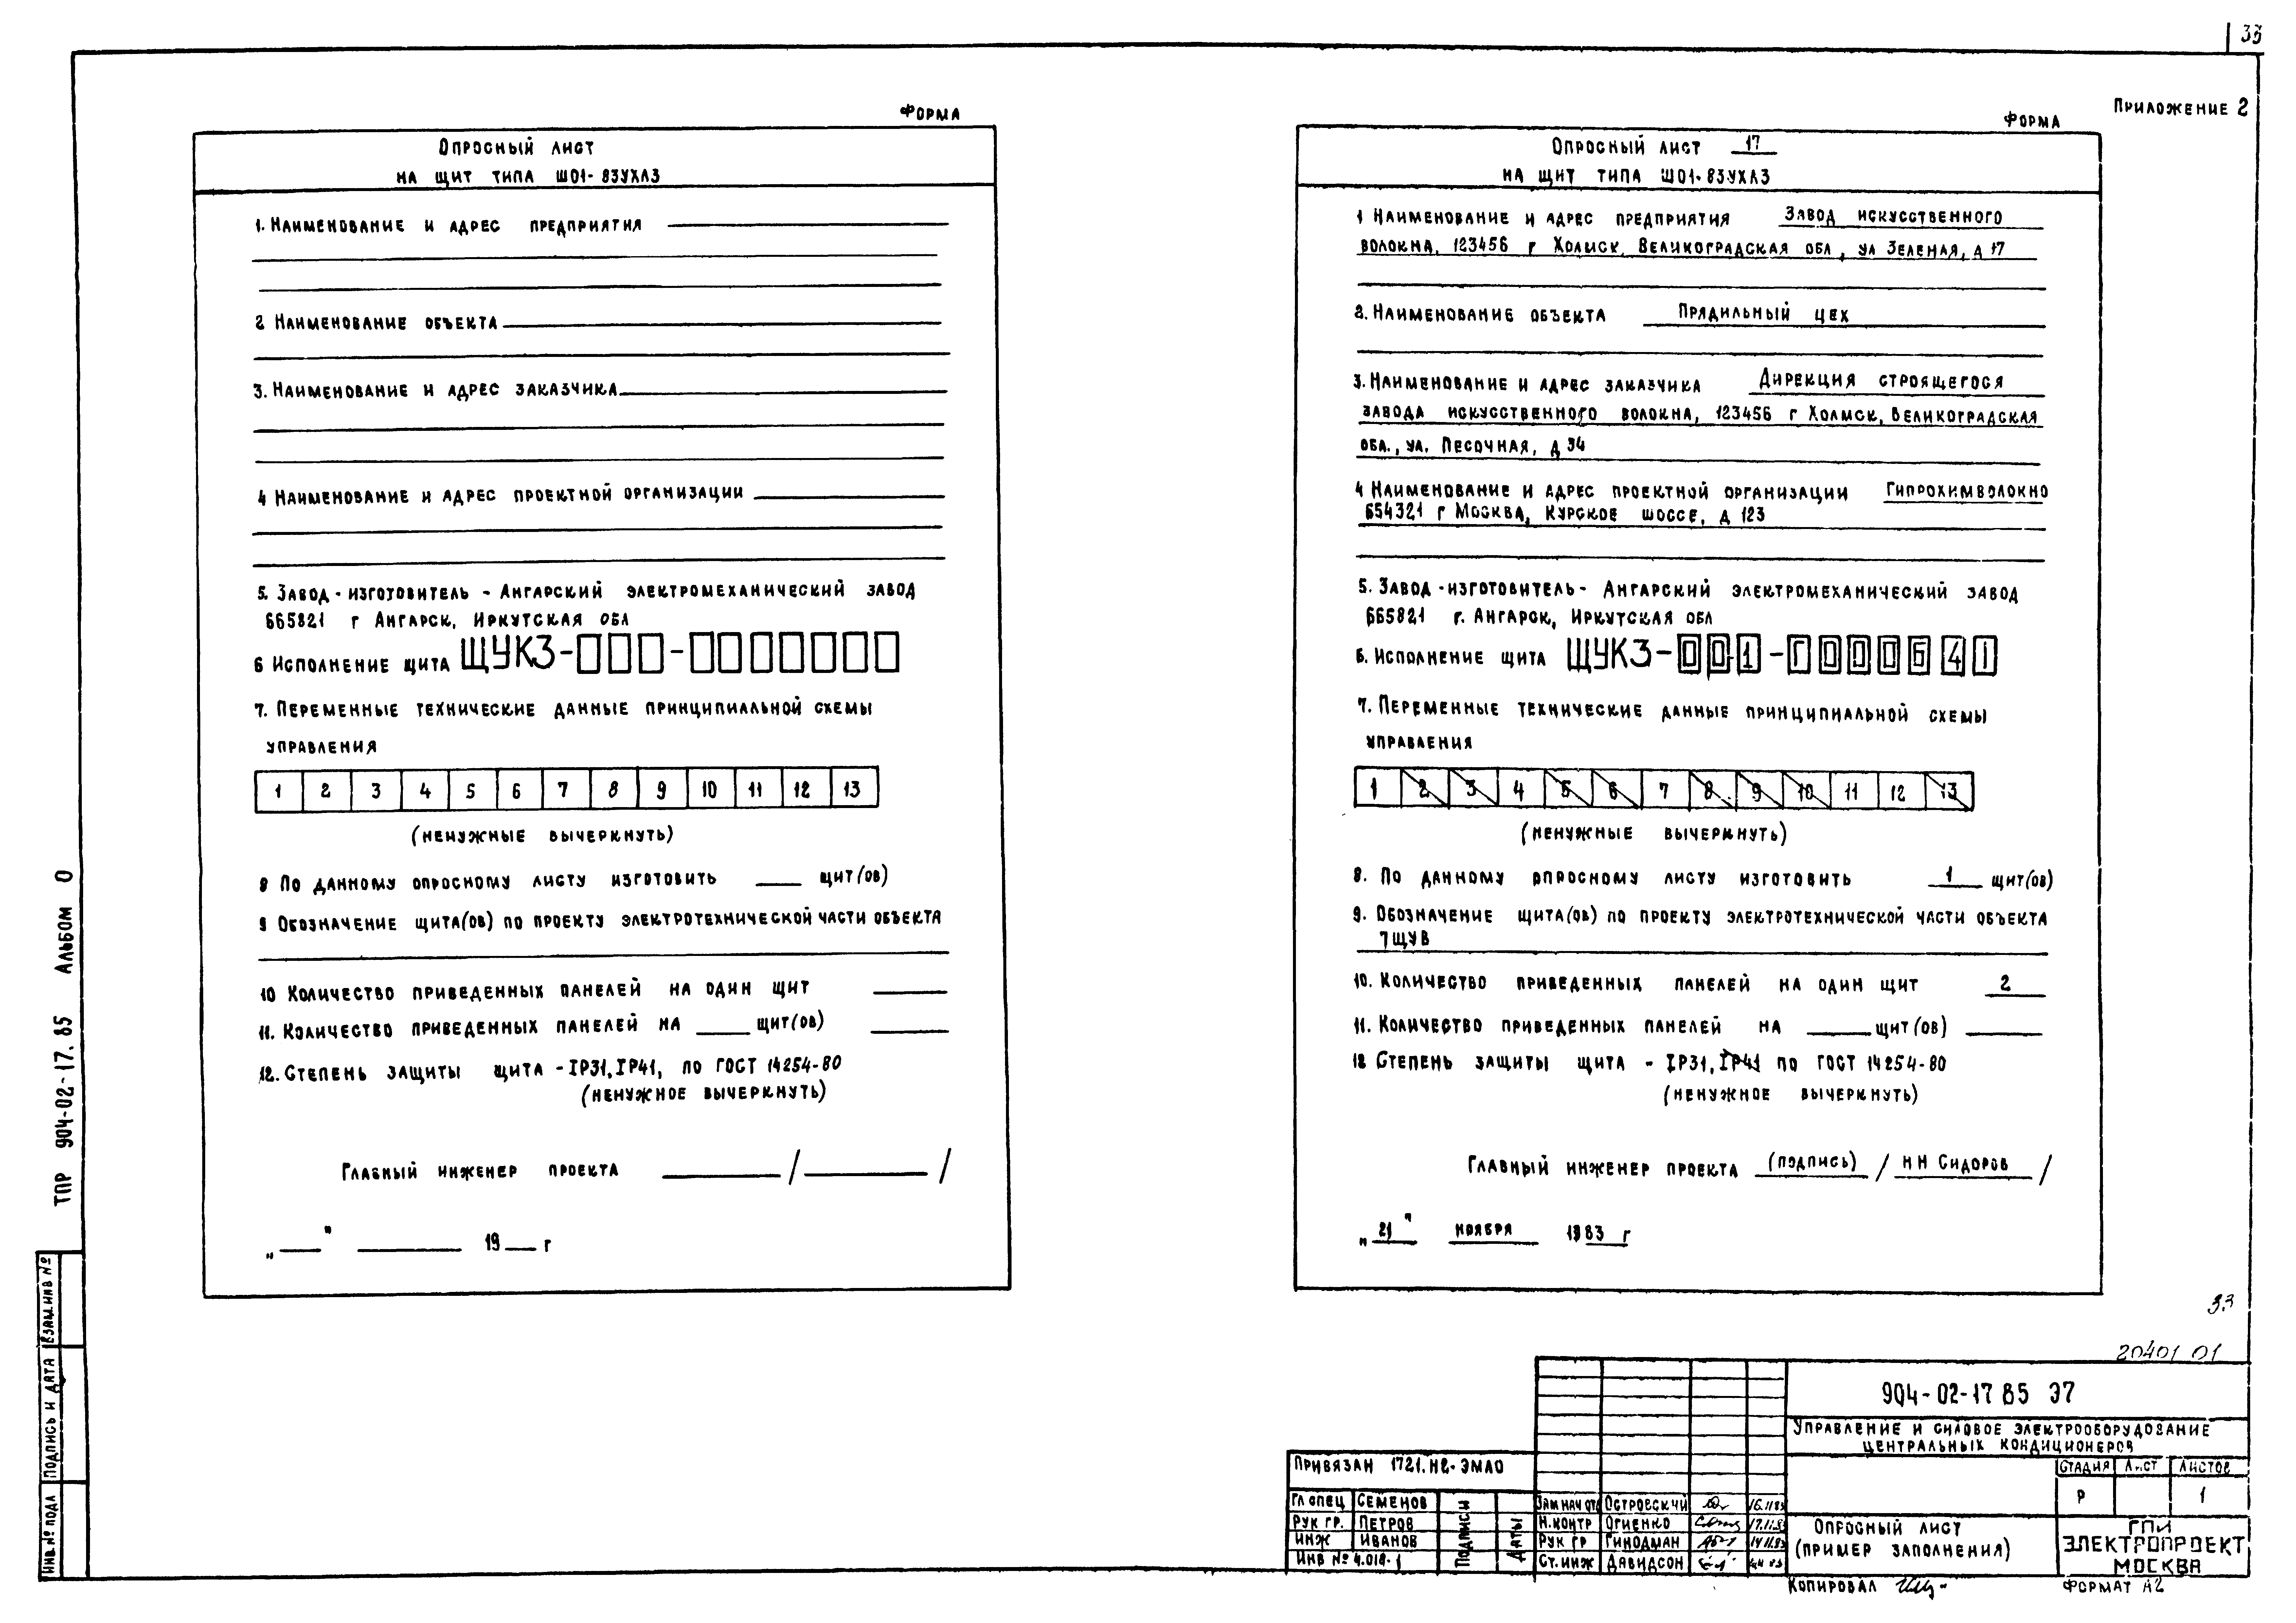 33
Приложение 2
Форма
Опросный лист
на щит типа ШО1-83УХЛ3
1. Наименование и адрес предприятия
2 Наименование объекта
3. Наименование и адрес заказчика
4 Наименование и адрес проектной организации
5. Завод-изготовитель - Ангарский электромеханический завод
665821 г Ангарск, Иркутская обл
6 Исполнение щита ЩУК3-□□□-□□□□□□□
7. Переменные технические данные принципиальной схемы
управления
1 2 3 4 5 6 7 8 9 10 11 12 13
(ненужные вычеркнуть)
8 По данному опросному листу изготовить ___ щит(ов)
9 Обозначение щита(ов) по проекту электротехнической части объекта
10 Количество приведенных панелей на один щит
11. Количество приведенных панелей на ___ щит(ов)
12. Степень защиты щита - IP31, IP41, по ГОСТ 14254-80
(ненужное вычеркнуть)
Главный инженер проекта ___ / ___ /
„ ___ " ___ 19 ___ г
Форма
Опросный лист 17
на щит типа ШО1-83УХЛ3
1 Наименование и адрес предприятия Завод искусственного
волокна, 123456 г Холмск, Великоградская обл, ул Зеленая, д 17
2. Наименование объекта Прядильный цех
3. Наименование и адрес заказчика Дирекция строящегося
завода искусственного волокна, 123456 г Холмск, Великоградская
обл., ул. Песочная, д 34
4 Наименование и адрес проектной организации Гипрохимволокно
654321 г Москва, Курское шоссе, д 123
5. Завод-изготовитель- Ангарский электромеханический завод
665821 г. Ангарск, Иркутская обл
6. Исполнение щита ЩУК3-001-Г000641
7. Переменные технические данные принципиальной схемы
управления
1 2 3 4 5 6 7 8 9 10 11 12 13
(ненужные вычеркнуть)
8. По данному опросному листу изготовить 1 щит(ов)
9. Обозначение щита(ов) по проекту электротехнической части объекта
7ЩУВ
10. Количество приведенных панелей на один щит 2
11. Количество приведенных панелей на ___ щит(ов)
12 Степень защиты щита - IP31, IP41 по ГОСТ 14254-80
(ненужное вычеркнуть)
Главный инженер проекта (подпись) / Н Н Сидоров /
„ 21 " ноября 1983 г
ТПР 904-02-17.85 Альбом 0
Инв № подл Подпись и дата Взам.инв №
33
20401 01
904-02-17 85 Э7
Управление и силовое электрооборудование
центральных кондиционеров
Стадия Лист Листов
Р 1
Опросный лист
(пример заполнения)
ГПИ
Электропроект
Москва
Привязан 1721.Н2-ЭМАО
Гл спец Семенов
Рук гр. Петров
Инж Иванов
Инв № 4.018-1
Подписи
Даты
Зам нач отд Островский 16.11.83
Н.контр Огиенко 17.11.83
Рук гр Гинодман 14.11.83
Ст. инж Давидсон
Копировал
Формат А2